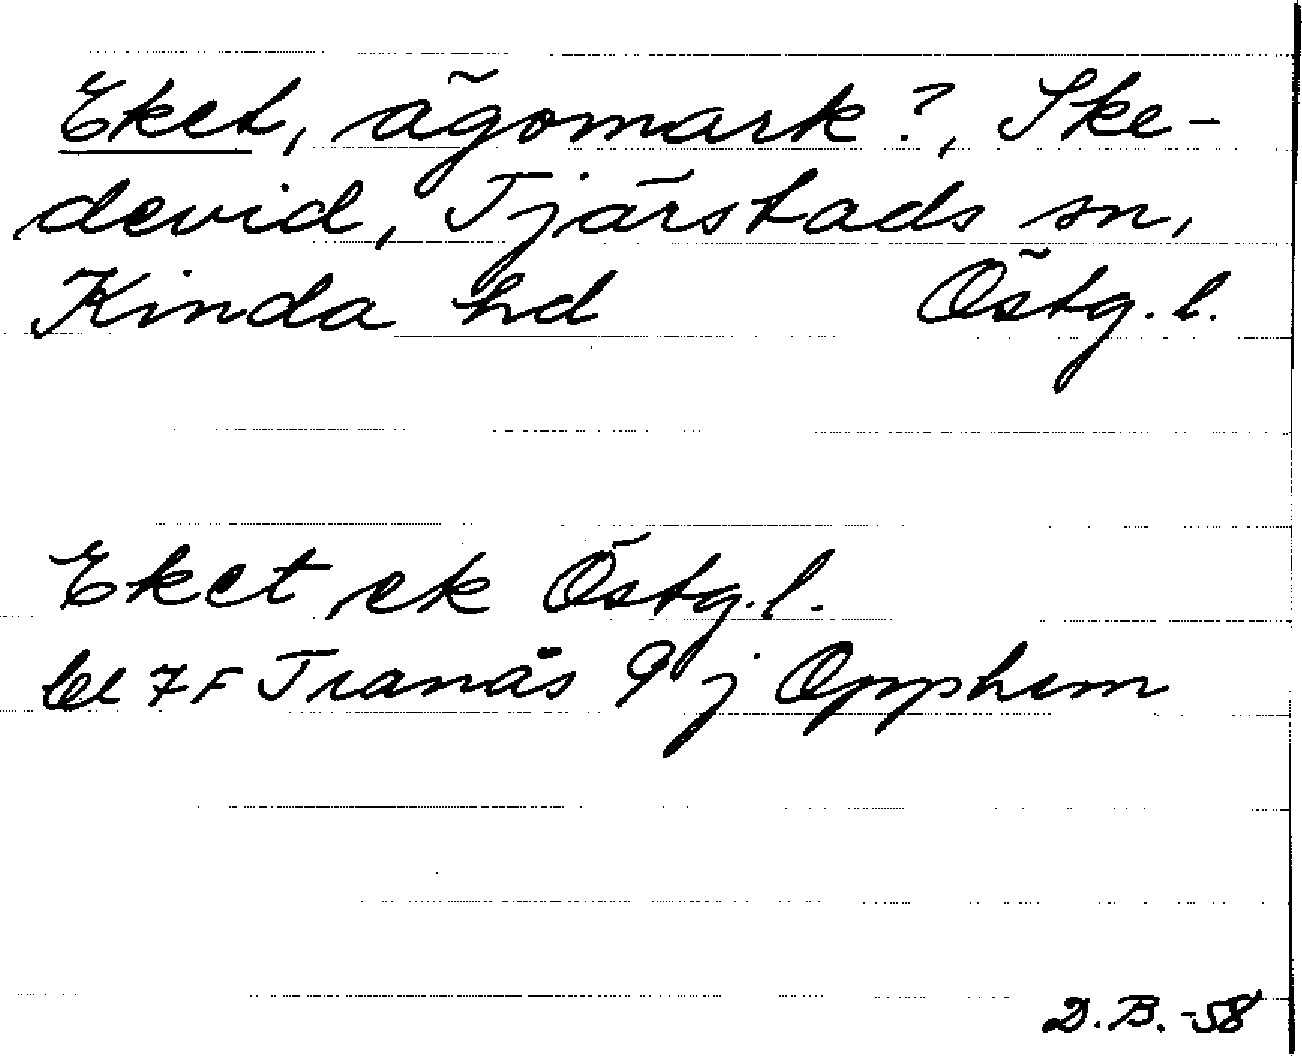 Eket, ägomark?, Ske-
devid, Tjärstads sn,
Kinda hd Östg. l.
Eket ek Östg. l.
bl 7F Tranås 9 j Opphem
D.B. -58